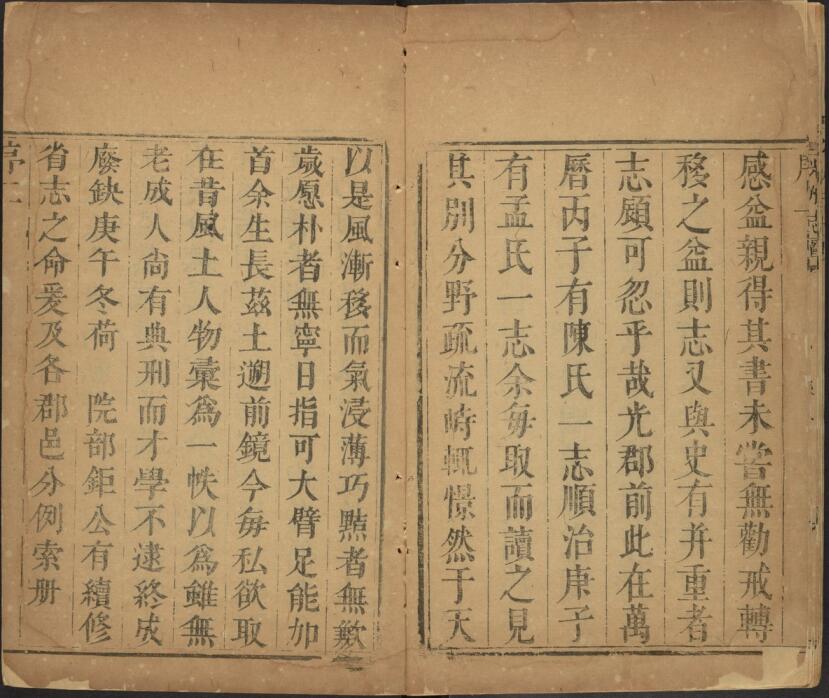 感益親得其書未嘗無勸戒轉
移之益則志又與史有并重者
志顧可忽乎哉光郡前此在萬
曆丙子有陳氏一志順治庚子
有孟氏一志余每取而讀之見
其別分野疏流峙輒憬然于天
以是風漸移而氣浸薄巧黠者無歉
歲愿朴者無寧日指可大臂足能加
首余生長茲土遡前鏡今每私欲取
在昔風土人物彙爲一帙以爲雖無
老成人尚有典刑而才學不逮終成
廢缺庚午冬荷 院部鉅公有續修
省志之命爰及各郡邑分例索册
序二